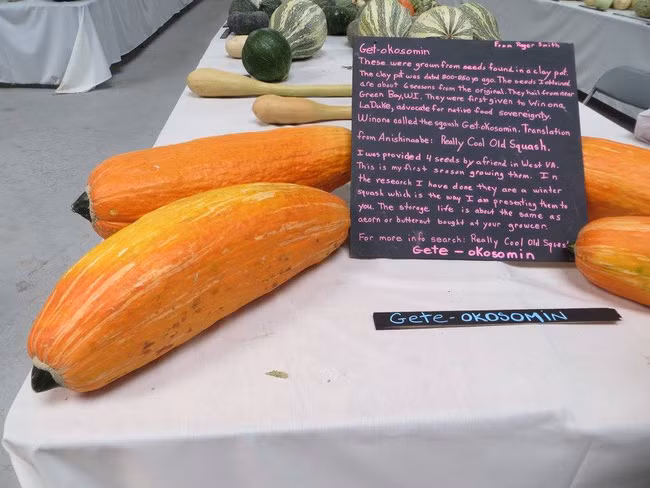 Get-okosomin From Roger Smith
These were grown from seeds found in a clay pot.
The clay pot was dated 800-850 yrs ago. The seeds I obtained
are about 6 seasons from the original. They hail from near
Green Bay, WI. They were first given to Winona
LaDuke, advocate for native food sovereignty.
Winona called the squash Get-okosomin. Translation
from Anishinaabe: Really Cool Old Squash.
I was provided 4 seeds by a friend in West VA.
This is my first season growing them. In
the research I have done they are a winter
squash which is the way I am presenting them to
you. The storage life is about the same as
acorn or butternut bought at your grocer.
For more info search: Really Cool Old Squash
Gete - okosomin
Gete-OKOSOMIN